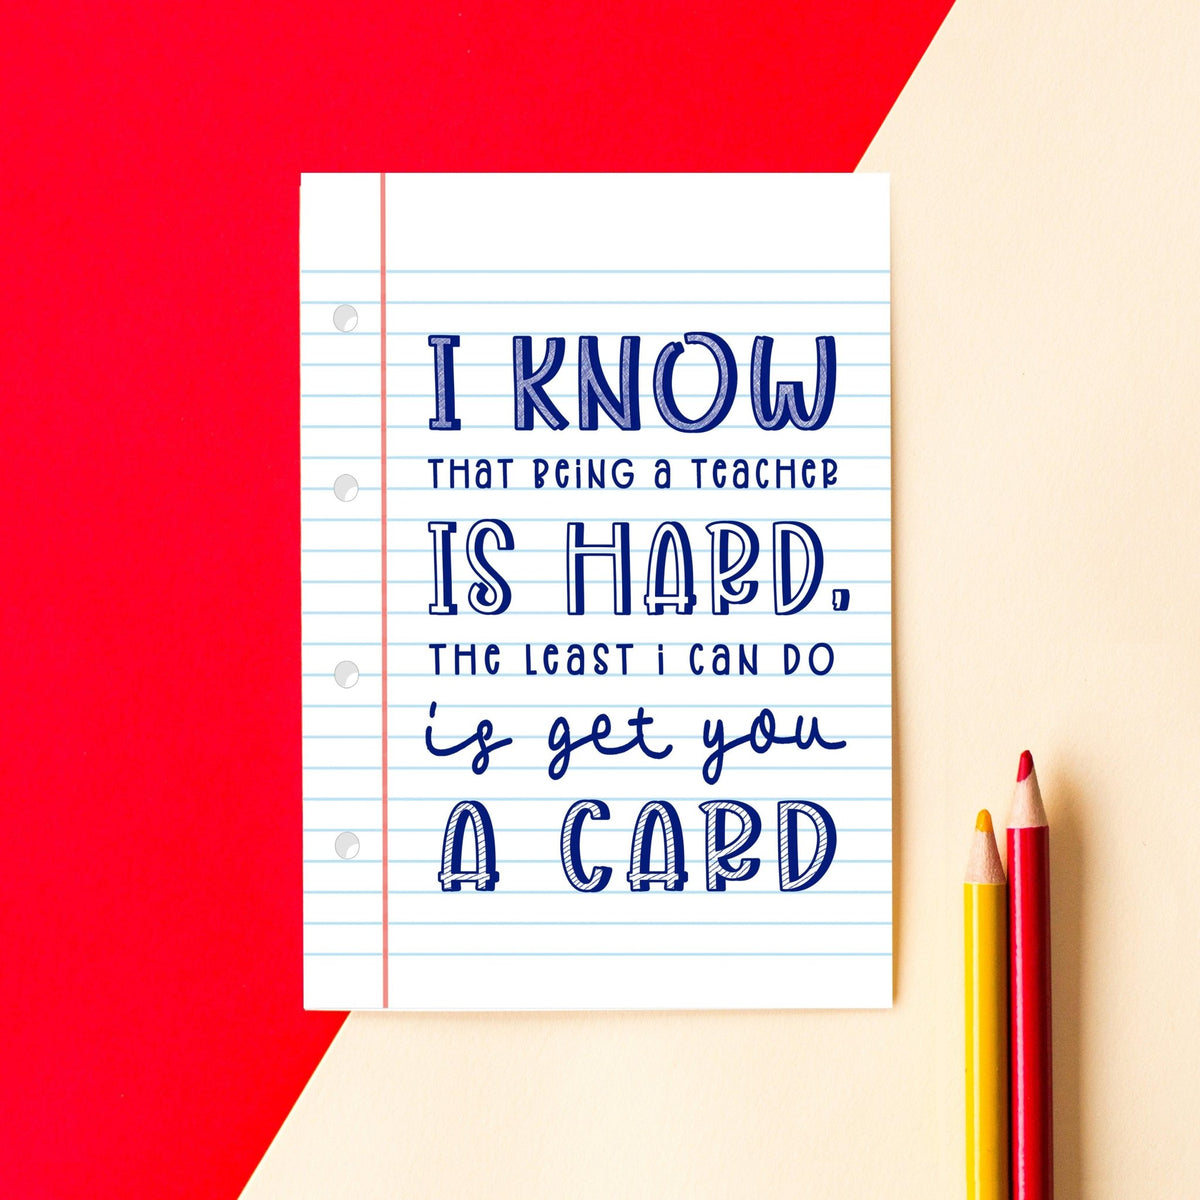 I KNOW
THAT BEING A TEACHER
IS HARD,
THE LEAST I CAN DO
is get you
A CARD